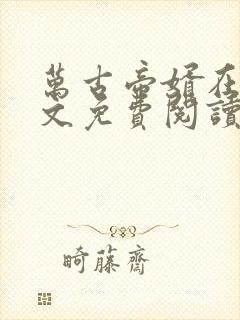 萬古帝婿在
文免費閱讀
畸藤齋